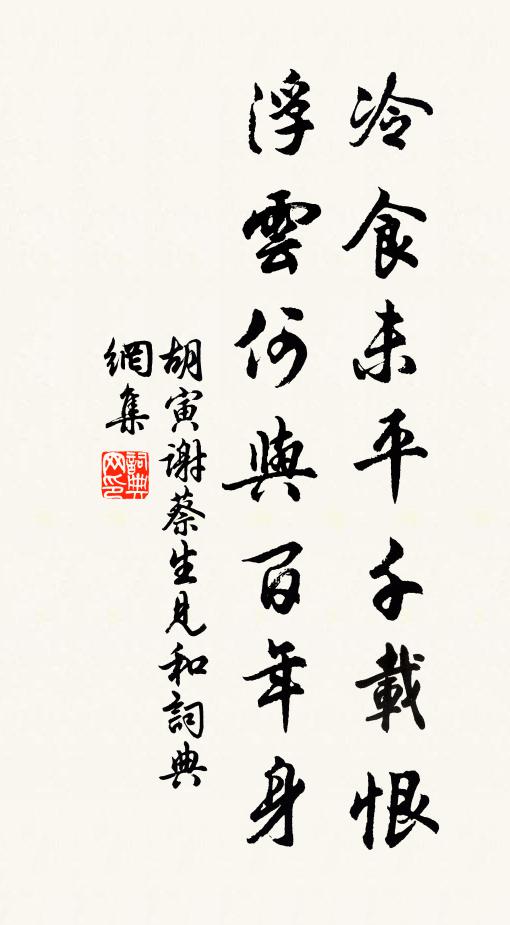 冷食未平千載恨
浮雲何與百年身
胡寅謝蔡生見和詞典
網集
詞典網印